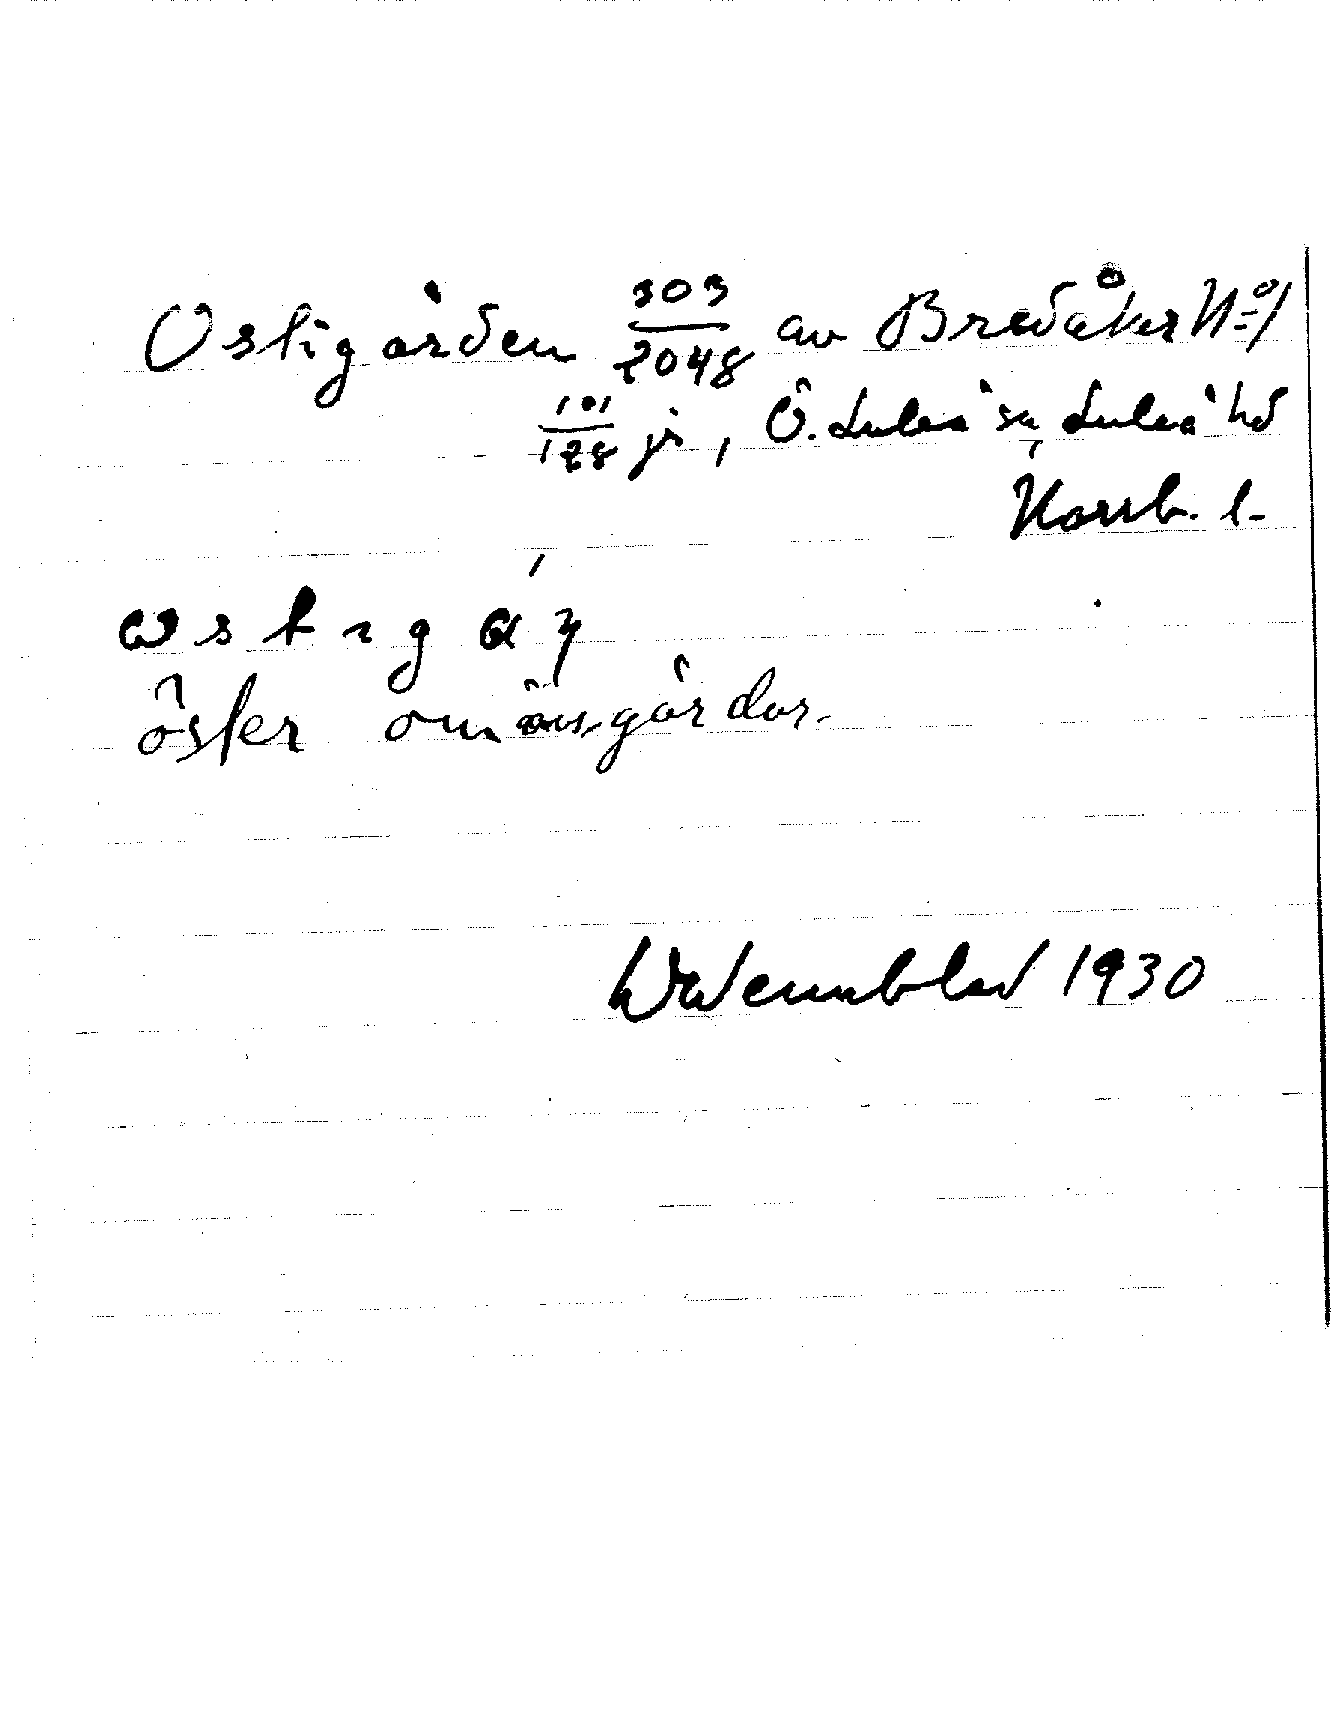 Ostigården 303/2048 av Bredåker No 1
101/128 jr, Ö. Luleå sn, Luleå hd
Norrb. l-
öster om åsgårdar.
W Wennblad 1930